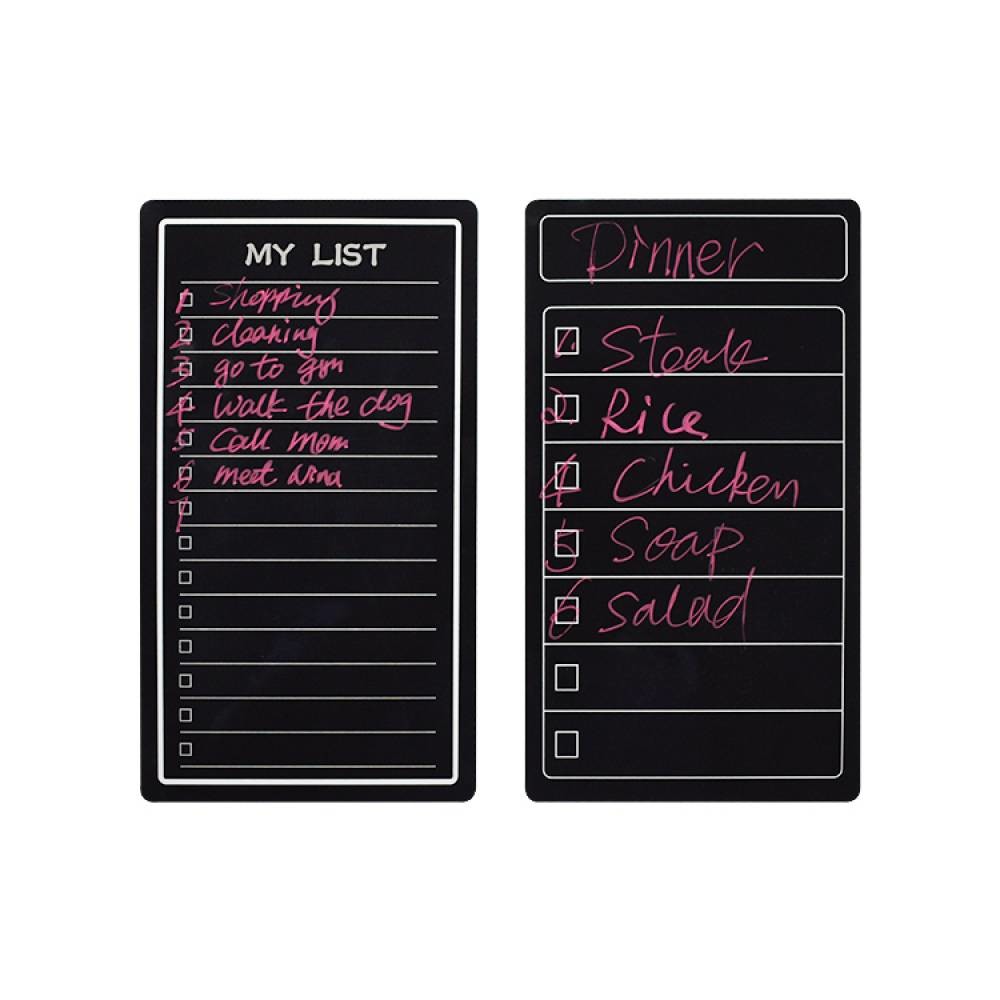 MY LIST
1 Shopping
2 cleaning
3 go to gym
4 walk the dog
5 Call mom
6 meet Nina
7
Dinner
1. Steak
2. Rice
4 Chicken
5 Soap
6 Salad